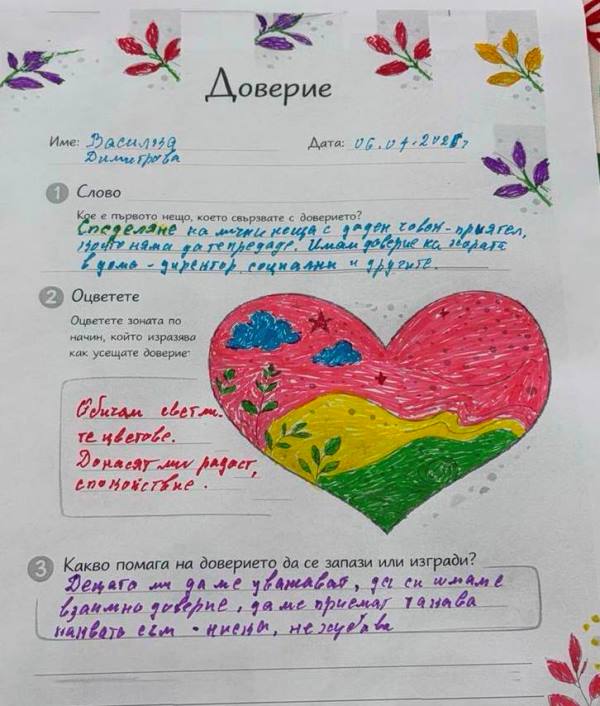 Доверие
Име: Василка
Димитрова
Дата: 06.04.202 г
1 Слово
Кое е първото нещо, което свързвате с доверието?
Споделяне на лични неща с даден човек - приятел,
който няма да те предаде. Имам доверие на хората
в дома - директор, социални и другите.
2 Оцветете
Оцветете зоната по
начин, който изразява
как усещате доверие
Обичам светли-
те цветове.
Донасят ми радост,
спокойствие.
3 Какво помага на доверието да се запази или изгради?
Децата ми да ме уважават, да си имаме
взаимно доверие, да ме приемат такава
каквато съм - ниска, не хубава